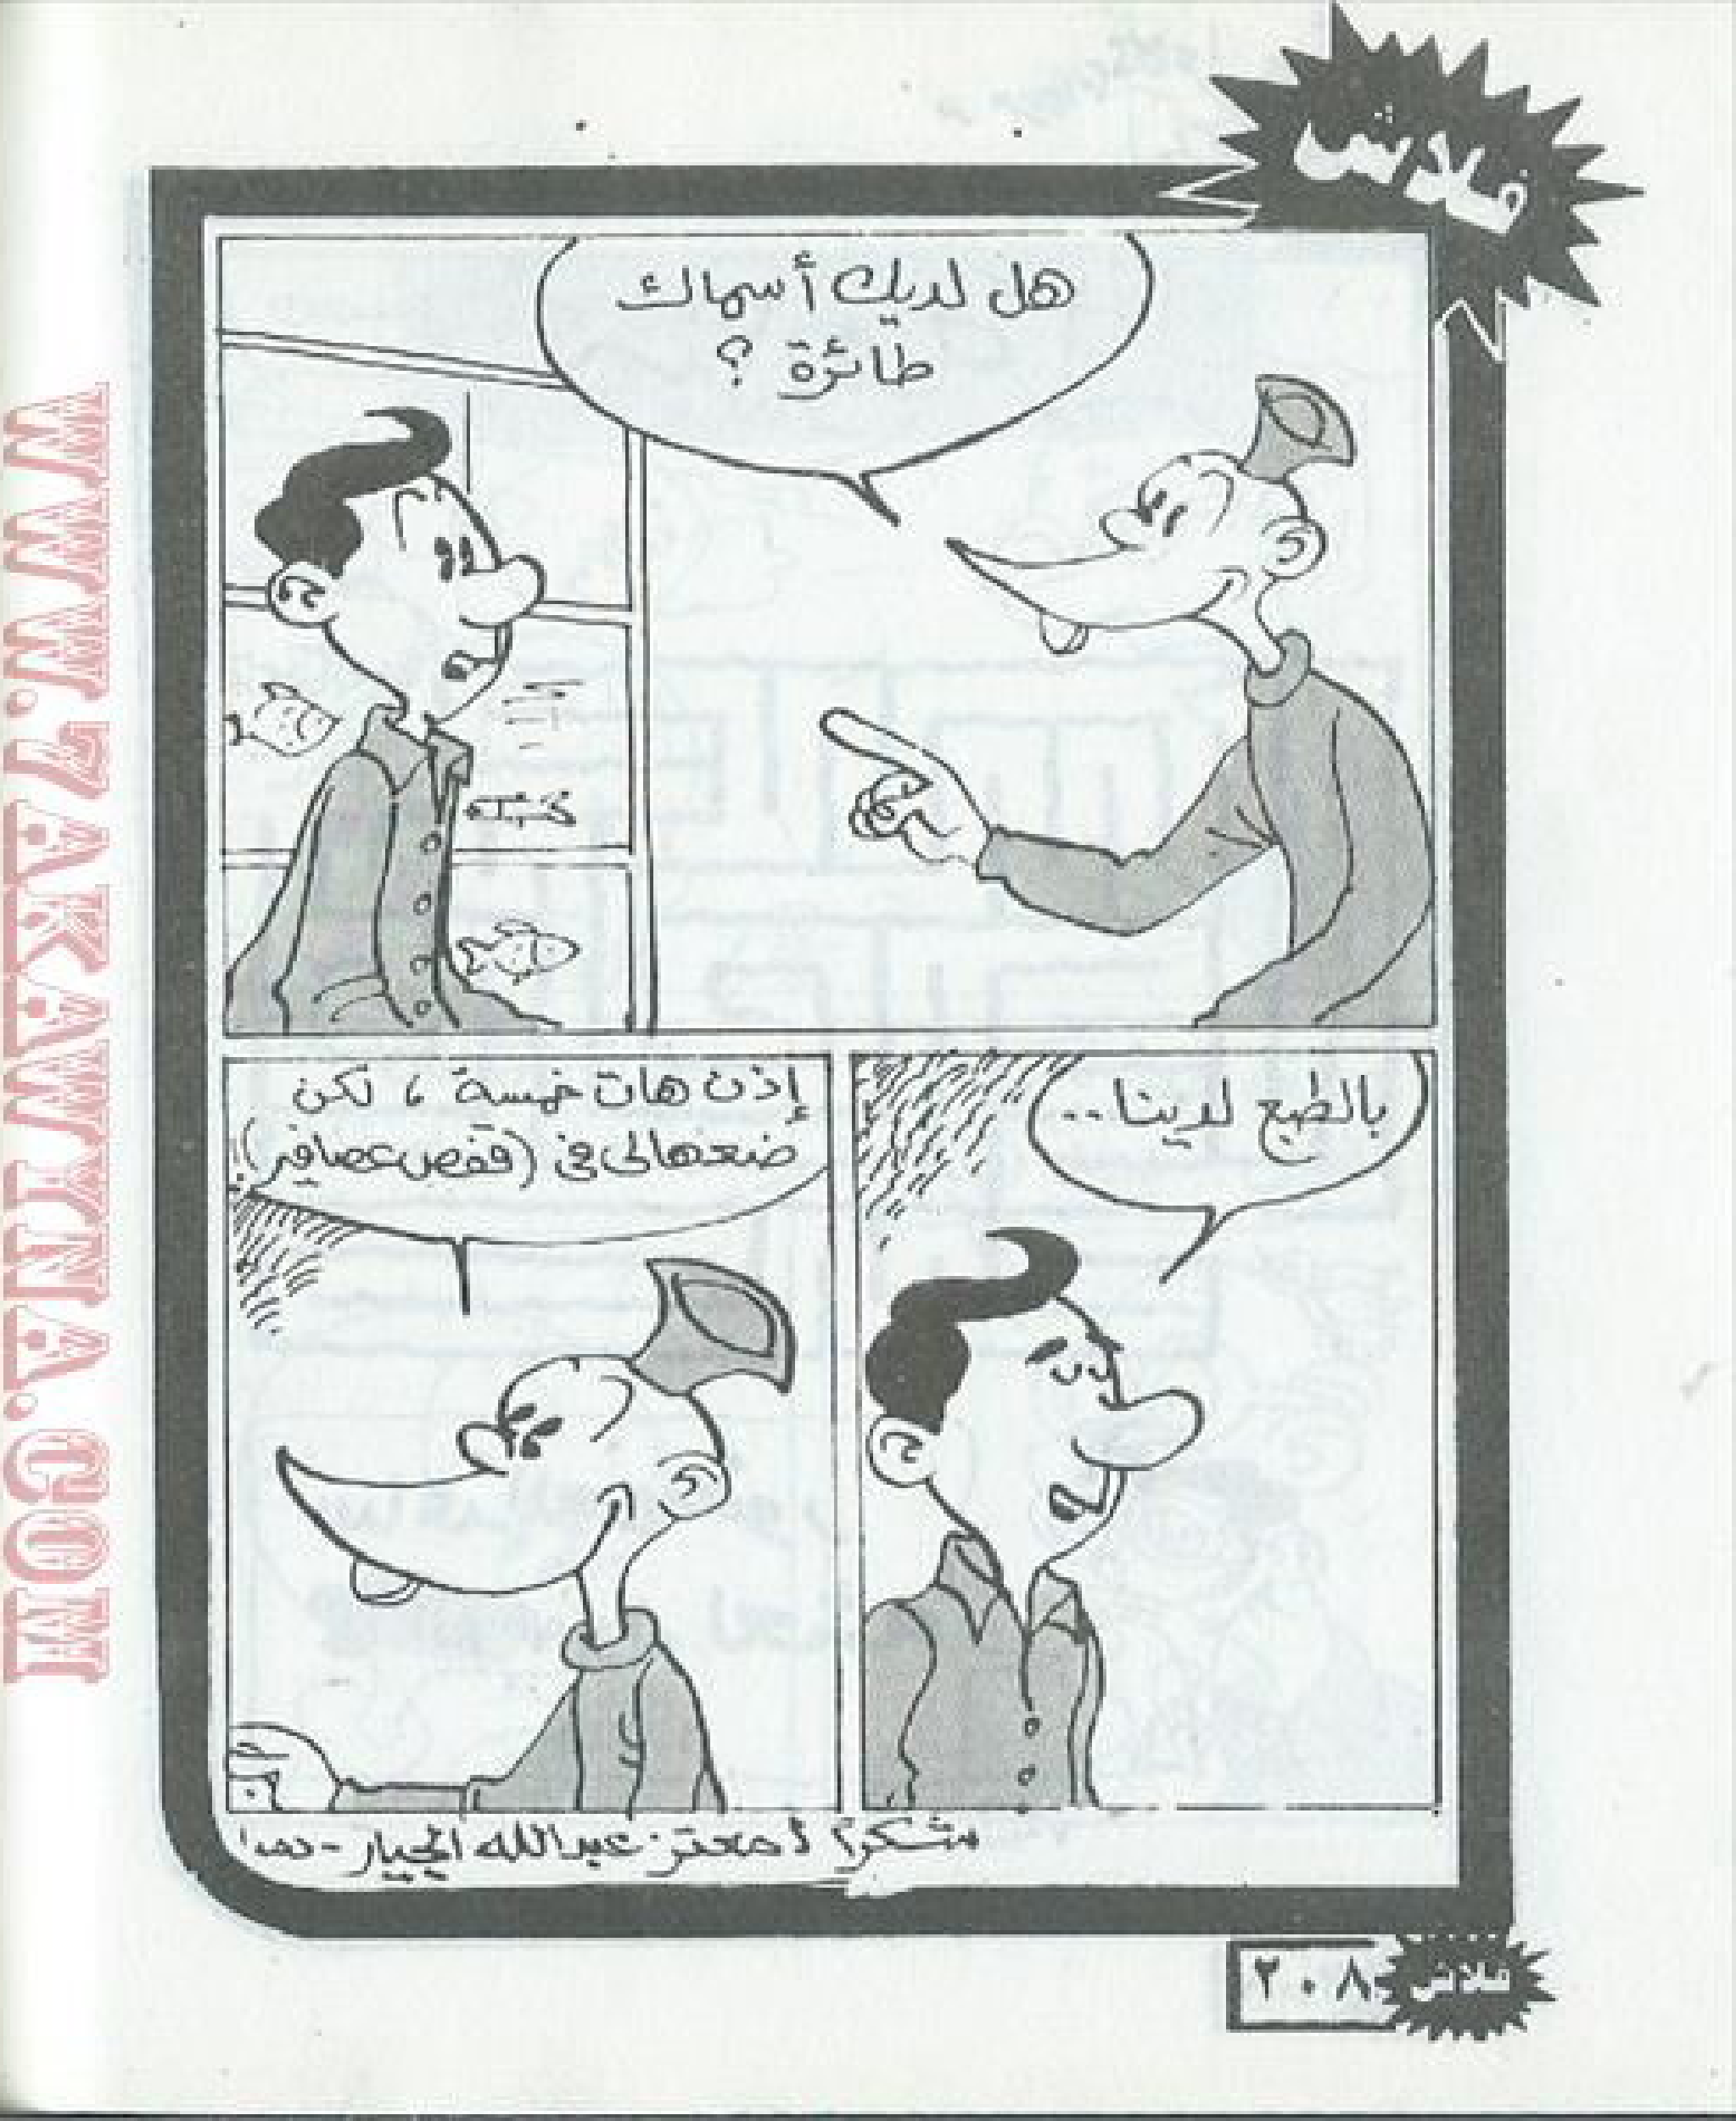 فلاش
هل لديك أسماك
طائرة ؟
بالطبع لدينا..
إذن هات خمسة ، لكن
ضعهالى فى (قفص عصافير)
شكراً لـ معتز عبدالله الجيار -
فلاش ٢٠٨
WWW.7AKAWITNA.COM